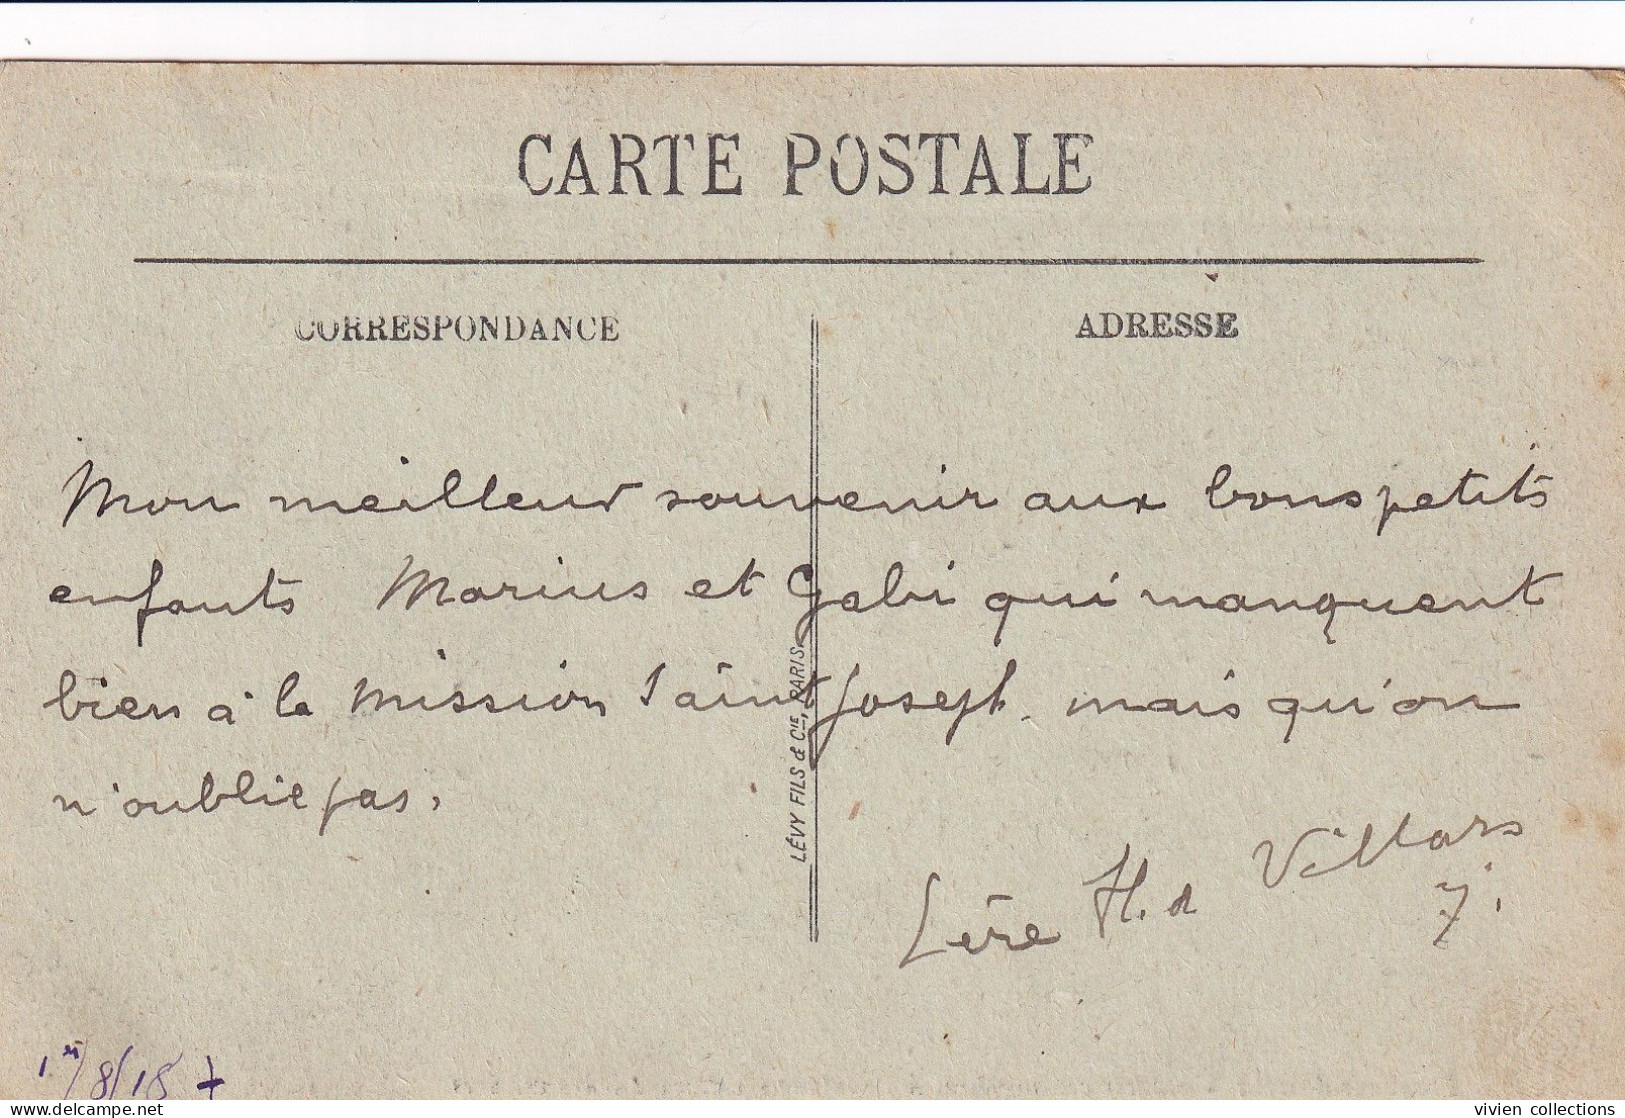 CARTE POSTALE
CORRESPONDANCE
ADRESSE
Mon meilleur souvenir aux bons petits
enfants Marius et Gabi qui manquent
bien à la mission Saint Joseph. mais qu'on
n'oublie pas.
H. d Villars
LÉVY FILS & CIE, PARIS.
8/18 +
vivien collections